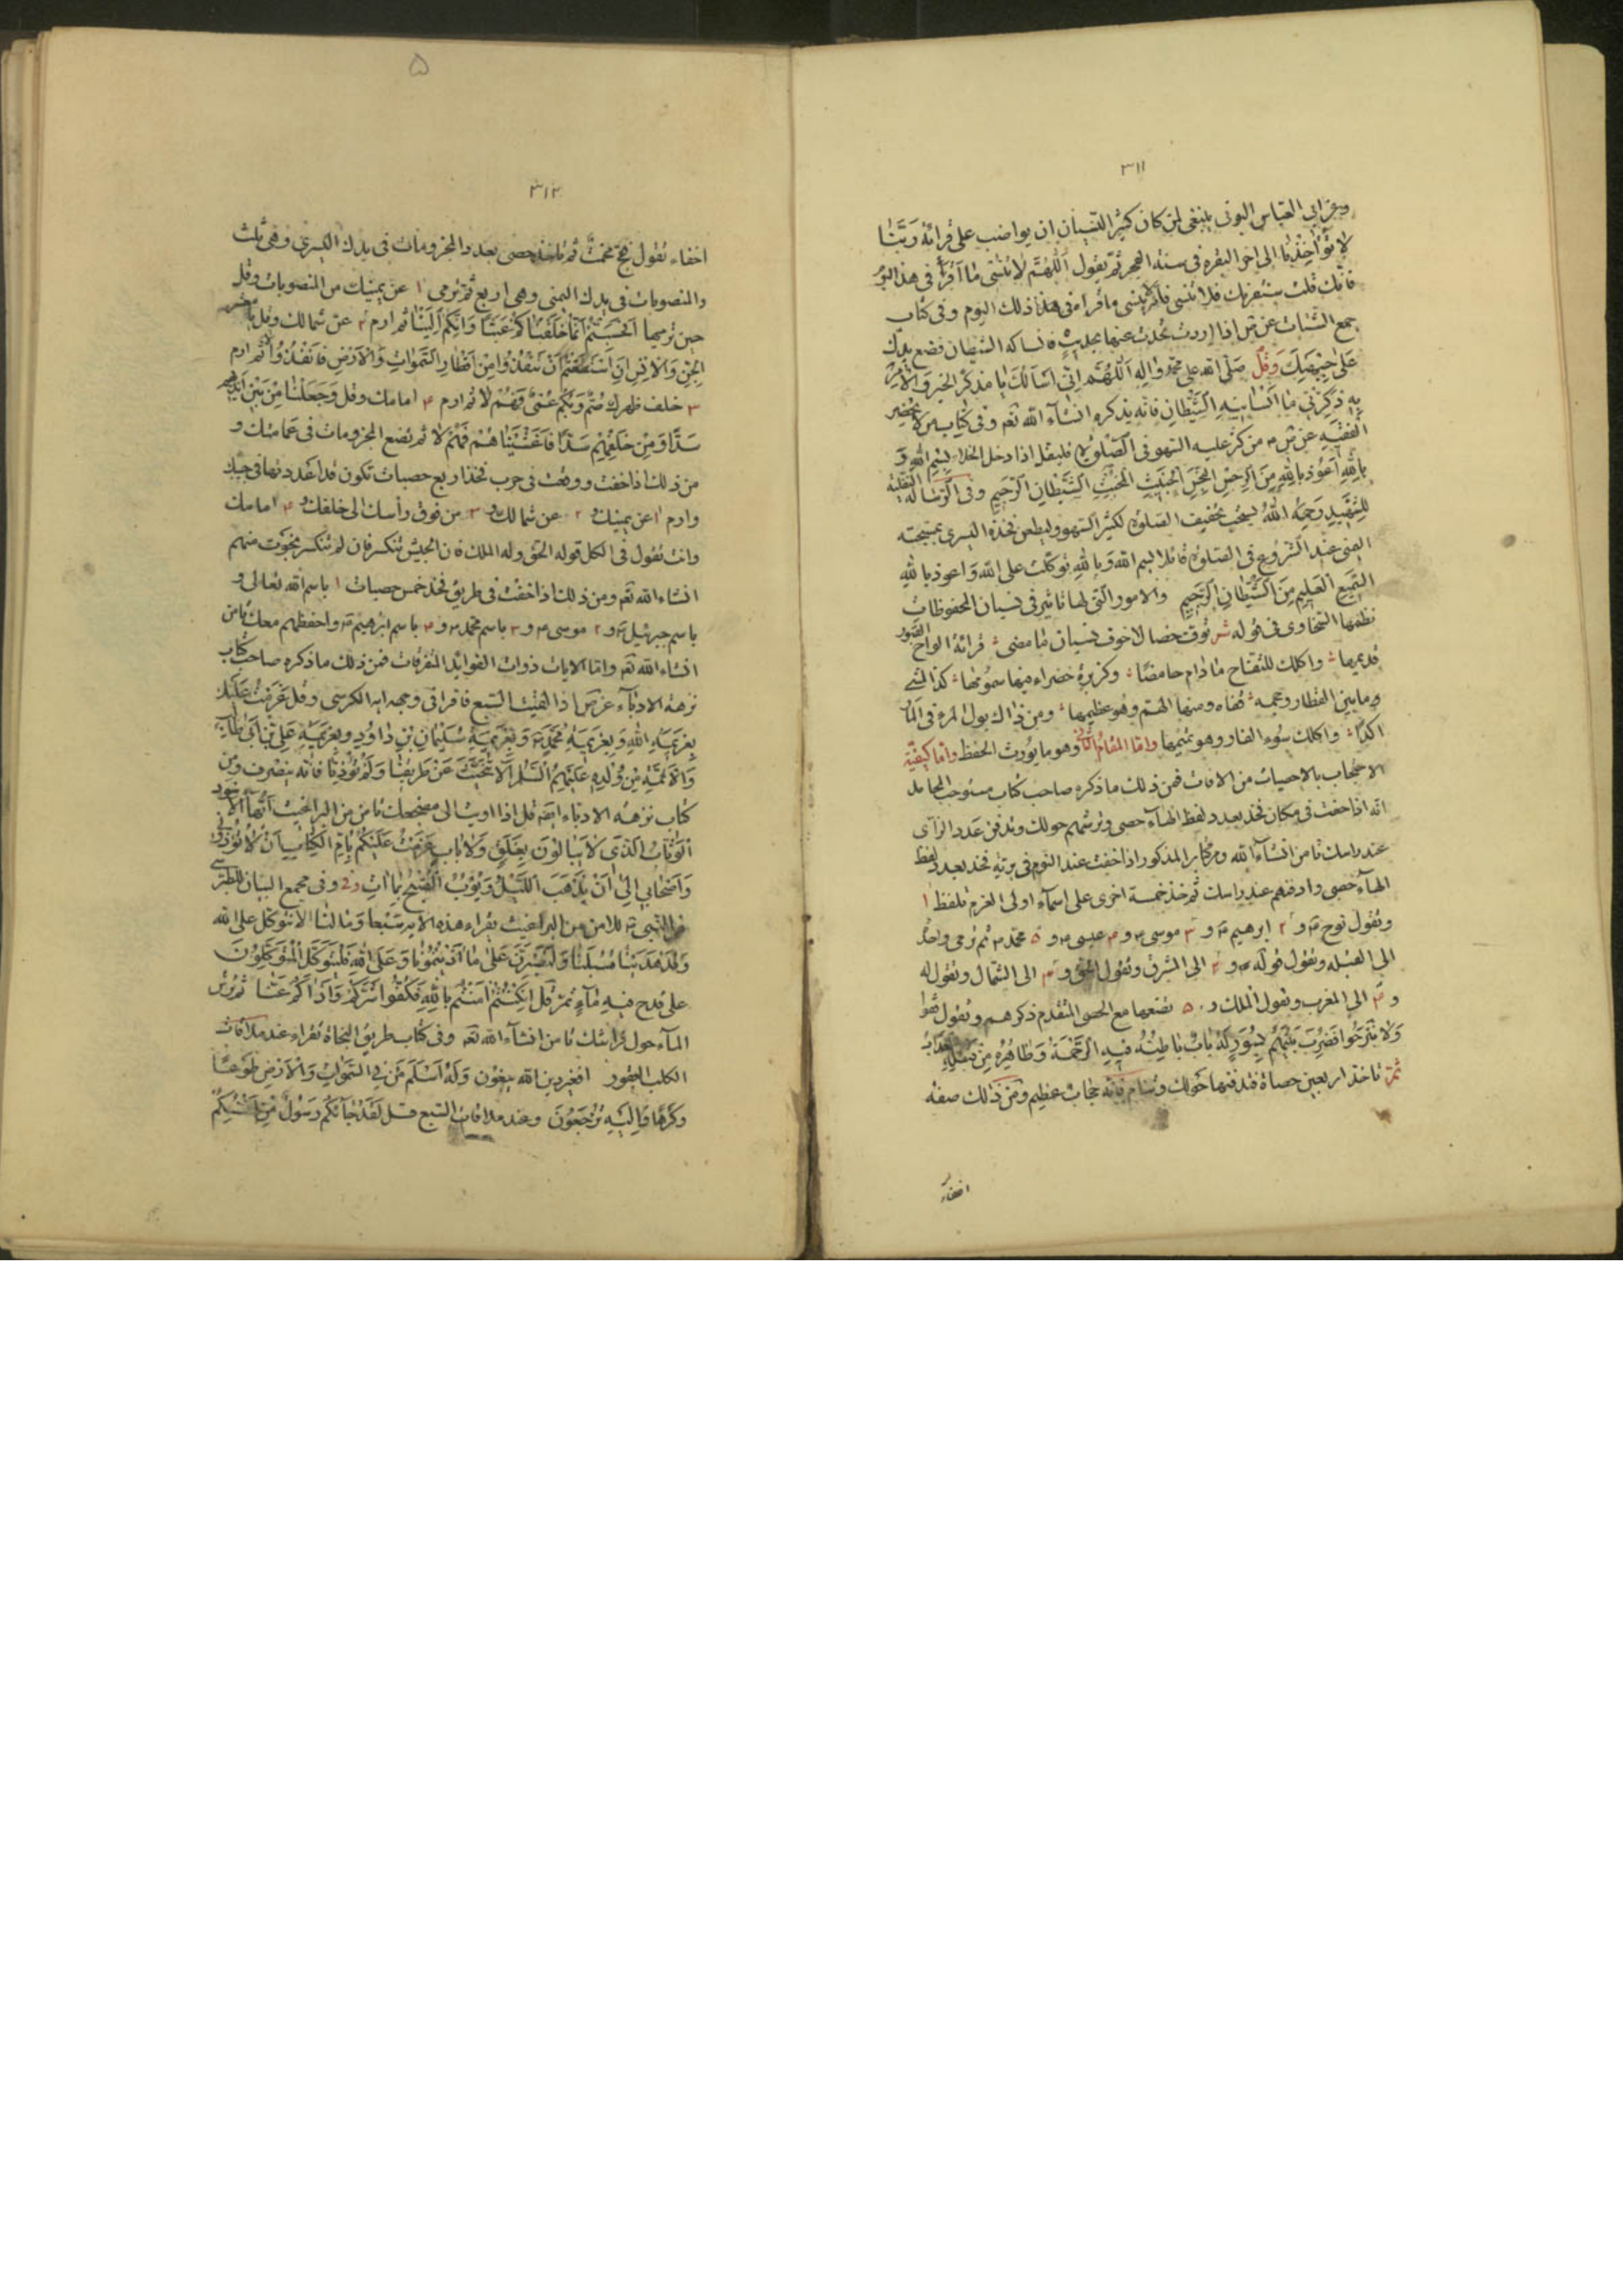 ٣١١
وعن ابى العباس البونى ينبغى لمن كان كثير النسيان ان يواضب على قرائة رَبَّنٰا
لا تُؤٰاخِذْنٰا الى اخر البقرة فى سنة الفجر ثم يقول اَللّٰهُمَّ لا تُنْسِنى مٰا اَقْرَأُ فى هذا اليوم
فانك قلت سنقرئك فلا تنسى فانه لا ينسى ما قرا فى هذا ذلك اليوم وفى كتاب
جمع الشتات عن ص اذا اردت تحدث عنها بحديث فانساكه الشيطان فضع يدك
على جبهتك وَقُل صَلَّى الله على محمّد وٰالِهِ اَللّٰهُمَّ اِنّى اَسْاَلُكَ يٰا مُذَكِّرَ الخَيرِ وَالْاٰمِرَ
بِهِ ذَكِّرْنى مٰا اَنْسٰانيهِ الشَّيْطٰانِ فانه يذكره انشآء الله تعه وفى كتاب من لا يحضر
الفقيه عن ص من كثر عليه السهو فى الصّلوة فليقل اذا دخل الخلاء بِسْمِ اللهِ وَ
بِاللهِ اَعُوذُ بِاللهِ مِنَ الرِّجْسِ النَّجَسِ الْخَبيثِ الْمُخْبِثِ الشَّيْطٰانِ الرَّجيمِ وفى الرسالة النفلية
للشَّهيدِ رَحِمَهُ اللهُ يستحب تخفيف الصلوة لكثير السهو وليطعن فخذه اليسرى بمسبحته
اليمنى عند الشروع فى الصلوة قائلا بسم الله وَبِاللهِ توكّلت على الله وَاعوذ بِاللهِ
السَّميعِ الْعَليمِ مِنَ الشَّيْطٰانِ الرَّجيمِ والامور الّتى لها تاثير فى نسيان المحفوظات
نظمها السخاوى فى قوله شعر توق خصالا خوف نسيان مٰا مضى قرائة الواح القبور
تديمها واكلك للتفاح مٰا دٰام حامضًا وكزبرة خضراء فيها سمومها كذا المشى
ما بين القطار وحجمه قفاه ومنها الهم وهو عظيمها ومن ذاك بول المرء فى المآء
اكدًا واكلك سُوء الفار وهو تميمها وامّا المقٰام الثّانى وهو ما يورث الحفظ وامّا كيفيّة
الاحتجاب بالاحصيات من الافات فمن ذلك ما ذكره صاحب كتاب مستوجب المحامد
انّه اذا خفت فى مكان فخذ بعدد لفظ الهآء حصى وترسمهم حولك وتدفن عدد الرّآى
عند راسك تامن انشآء الله ومن كتابه المذكور اذا خفت عند النوم فى برية فخذ بعدد لفظ
الهآء حصى وادفنهم عند راسك ثم خذ خمسة اخرى على اسمآء اولى العزم فلفظ ١
وتقول نوح ع و ٢ ابرهيم ع و ٣ موسى ع و ۴ عيسى ع و ٥ محمّد ص ثم ترمى واحدة
الى القبلة وتقول قوله و ٢ الى الشرق وتقول الحق و ٣ الى الشمال وتقول له
و ۴ الى المغرب وتقول الملك و ٥ تضعها مع الحصى المتقدم ذكرهم وتقول
وَلٰا تَبْرَحُوا فَضُرِبَ بَيْنَهُمْ بِسُورٍ لَهُ بٰابٌ بٰاطِنُهُ فيهِ الرَّحْمَةُ وَظٰاهِرُهُ مِنْ قِبَلِهِ الْعَذٰابُ
ثمّ تاخذ اربعين حصاة فتدفنها حولك وتنام فانه حجاب عظيم ومن ذلك صفة
اخفاء
۵
٣١٢
اخفاء تقول مخمت ثم تاخذ حصى بعدد المجزومات فى يدك اليسرى وهى ثلث
والمنصوبات فى يدك اليمنى وهى اربع ثم ترمى ١ عن يمينك من المنصوبات وقل
حين ترميها اَفَحَسِبْتُمْ اَنَّمٰا خَلَقْنٰاكُمْ عَبَثًا وَاَنَّكُمْ اِلَيْنٰا ثم ارم ٢ عن شمالك وقل يا معشر
الْجِنِّ وَالْاِنْسِ اِنِ اسْتَطَعْتُمْ اَنْ تَنْفُذُوا مِنْ اَقْطٰارِ السَّمٰوٰاتِ وَالْاَرْضِ فَانْفُذُوا لا ثم ارم
٣ خلف ظهرك صُمٌّ وَبُكْمٌ عُمْىٌ فَهُمْ لا ثم ارم ۴ امامك وقل وَجَعَلْنٰا مِنْ بَيْنِ اَيْديهِمْ
سَدًّا وَمِنْ خَلْفِهِمْ سَدًّا فَاَغْشَيْنٰاهُمْ فَهُمْ لا ثم تضع المجزومات فى عمامتك و
من ذلك اذا خفت ووقعت فى حرب فخذ اربع حصيات تكون قد اعددتها فى جيبك
وارم ١ عن يمينك و ٢ عن شمالك و ٣ من فوق رأسك الى خلفك و ۴ امامك
وانت تقول فى الكل قوله الحق وله الملك فان الجيش تنكسر فان لم تنكسر نجوت منهم
انشاء الله تعه ومن ذلك اذا خفت فى طريق فخذ خمس حصيات ١ باسم الله تعالى و
باسم جبرئيل ع و ٢ موسى ع و ٣ باسم محمد ص و ۴ باسم ابرهيم ع واحفظهم معك تامن
انشاء الله تعه وامّا الايات ذوات الفوائد المتفرقات فمن ذلك ما ذكره صاحب كتاب
نزهة الادبآء عن ص اذا لقيت السبع فاقرا فى وجهه اية الكرسى وقل عَزَمْتُ عَلَيْكَ
بِعَزيمَةِ اللهِ وَبِعَزيمَةِ مُحَمَّدٍ ص وَبِعَزيمَةِ سُلَيْمٰانَ بْنِ دٰاوُدِ وبِعَزيمَةِ عَلىِّ بْنِ اَبى طٰالِبٍ
وَالْاَئِمَّةِ مِنْ وُلْدِهِ عَلَيْهِمُ السَّلٰمُ اَلّا تَنَحَّيْتَ عَنْ طَريقِنٰا وَلَمْ تُؤْذِنٰا فانه ينصرف ومن
كتاب نزهة الادباء ايضا قل اذا اويت الى مضجعك تامن من البراغيث اَيُّهَا الْاَسْوَدُ
الْوَثّٰابُ الَّذى لٰا يُبٰالُونَ بِغَلَقٍ وَلٰا بٰابٍ عَزَمْتُ عَلَيْكُمْ بِاُمِّ الْكِتٰابِ اَنْ لٰا تُؤْذُونى
وَاَصْحٰابى اِلىٰ اَنْ يَذْهَبَ اللَّيْلُ وَيَؤُبَ الصُّبْحُ بِمٰا اٰبَ وفى مجمع البيان للطبرسى
عن النّبىّ ص للامن من البراغيث يقراء هذه الاية سَبْعا وَمٰا لَنٰا اَلّٰا نَتَوَكَّلَ عَلَى اللهِ
وَقَدْ هَدٰينٰا سُبُلَنٰا وَلَنَصْبِرَنَّ عَلىٰ مٰا اٰذَيْتُمُونٰا وَعَلَى اللهِ فَلْيَتَوَكَّلِ الْمُتَوَكِّلُونَ
على قدح فيه مٰآءٍ ثمّ قل اِنْ كُنْتُمْ اٰمَنْتُمْ بِاللهِ فَكُفُّوا شَرَّكُمْ وَاَذٰاكُمْ عَنّٰا ثم ترش
المآء حول فراشك تامن انشآء الله تعه وفى كتاب طريق النجاة تقراء عند ملاقات
الكلب العقور افغير دين الله يبغون وَلَهُ اَسْلَمَ مَنْ فِى السَّمٰوٰاتِ وَالْاَرْضِ طَوْعًا
وَكَرْهًا وَاِلَيْهِ تُرْجَعُونَ وعند ملاقات السّبع قل لَقَدْ جٰآءَكُمْ رَسُولٌ مِنْ اَنْفُسِكُمْ